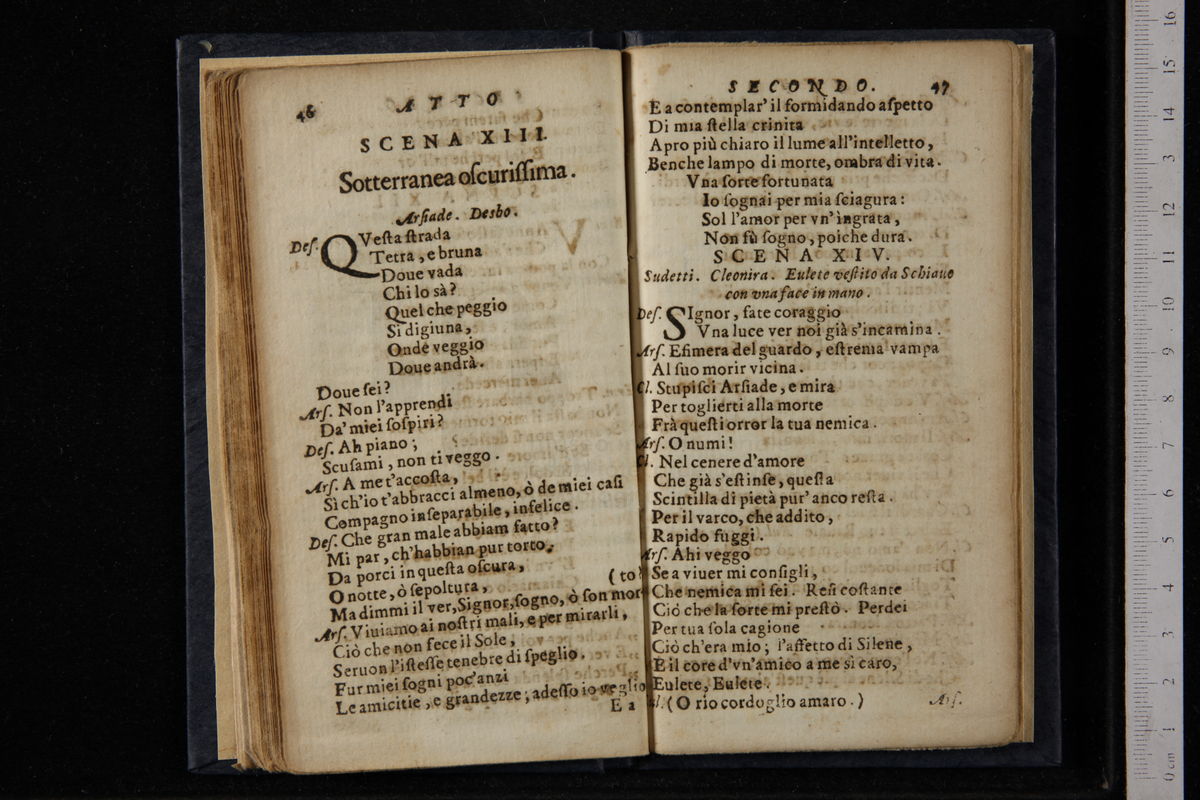 46 ATTO
SCENA XIII.
Sotterranea oſcuriſſima.
Arſiade. Desbo.
Deſ. QVeſta ſtrada
Tetra, e bruna
Doue vada
Chi lo sà?
Quel che peggio
Si digiuna,
Onde veggio
Doue andrà.
Doue ſei?
Arſ. Non l'apprendi
Da' miei ſoſpiri?
Deſ. Ah piano;
Scuſami, non ti veggo.
Arſ. A me t'accoſta,
Sì ch'io t'abbracci almeno, ò de miei caſi
Compagno inſeparabile, infelice.
Deſ. Che gran male abbiam fatto?
Mi par, ch'habbian pur torto,
Da porci in queſta oſcura,
O notte, ò ſepoltura, (to?
Ma dimmi il ver, Signor, ſogno, ò ſon mor
Arſ. Viuiamo ai noſtri mali, e per mirarli,
Ciò che non fece il Sole,
Seruon l'iſteſſe tenebre di ſpeglio.
Fur miei ſogni poc'anzi
Le amicitie, e grandezze; adeſſo io veglio
E a
SECONDO. 47
E a contemplar' il formidando aſpetto
Di mia ſtella crinita
Apro più chiaro il lume all'intelletto,
Benche lampo di morte, ombra di vita.
Vna ſorte fortunata
Io ſognai per mia ſciagura:
Sol l'amor per vn' ingrata,
Non fù ſogno, poiche dura.
SCENA XIV.
Sudetti. Cleonira. Eulete veſtito da Schiauo
con vna face in mano.
Deſ. SIgnor, fate coraggio
Vna luce ver noi già s'incamina.
Arſ. Efimera del guardo, eſtrema vampa
Al ſuo morir vicina.
Cl. Stupiſci Arſiade, e mira
Per toglierti alla morte
Frà queſti orror la tua nemica.
Arſ. O numi!
Cl. Nel cenere d'amore
Che già s'eſtinſe, queſta
Scintilla di pietà pur' anco reſta.
Per il varco, che addito,
Rapido fuggi.
Arſ. Ahi veggo
Se a viuer mi conſigli,
Che nemica mi ſei. Reſi coſtante
Ciò che la ſorte mi preſtò. Perdei
Per tua ſola cagione
Ciò ch'era mio; l'affetto di Silene,
E il core d'vn'amico a me sì caro,
Eulete, Eulete.
Eul. (O rio cordoglio amaro.)
Arſ.